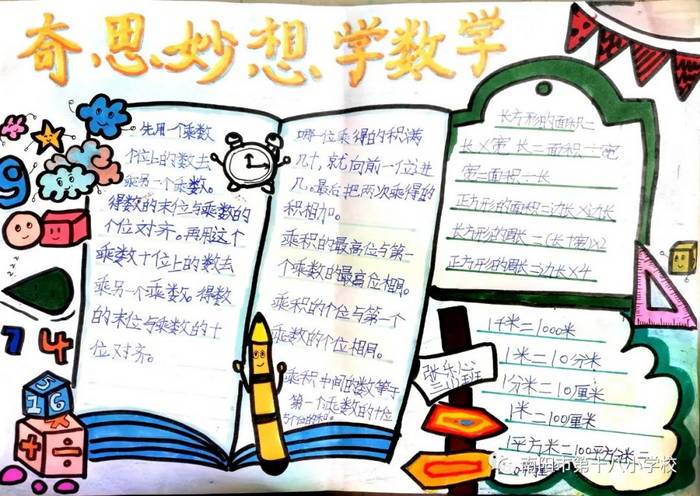 奇思妙想学数学
先用一个乘数
个位上的数去
乘另一个乘数。
得数的末位与乘数的
个位对齐。再用这个
乘数十位上的数去
乘另一个乘数。得数
的末位与乘数的十
位对齐。
哪一位乘得的积满
几十,就向前一位进
几。最后把两次乘得的
积相加。
乘积的最高位与第一
个乘数的最高位相同。
乘积的个位与第一个
乘数的个位相同。
乘积中间的数等于
第一个乘数的十位
与个位的和。
长方形的面积=
长×宽 长=面积÷宽
宽=面积÷长
正方形的面积=边长×边长
长方形的周长=(长+宽)×2
正方形的周长=边长×4
1千米=1000米
1米=10分米
1分米=10厘米
1米=100厘米
1平方米=100平方分米=
三(1)班
9
7 4
5 1 6
+ ÷
南阳市第十八小学校